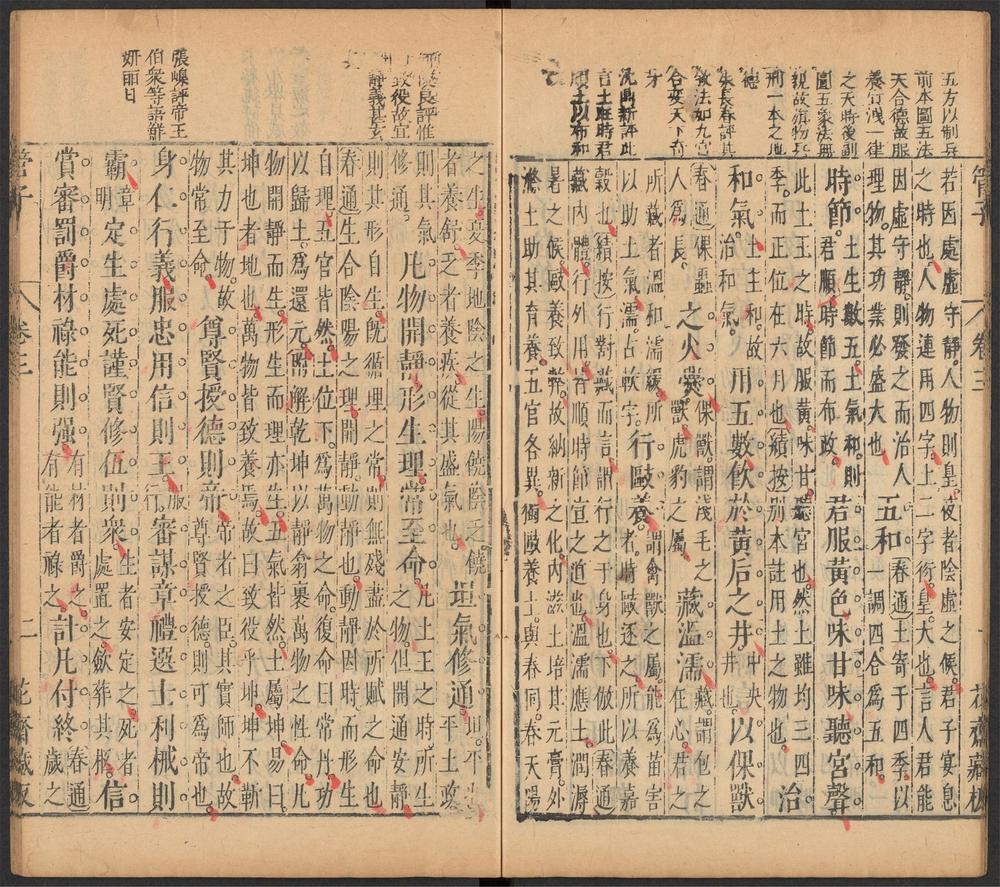 五方以制兵
前本圖五法
天合德故服
養宣洩一律
之天時後劃
圖五象法無
視故旗物兵
刑一本之地
德
朱長春評其
敘法如九宮
合变天下奇
才
沈鼎新評此
言土旺時君
順土以布和
管子 卷三 花齋藏板
若因處虛守靜人物則皇夜者陰虛之候君子宴息
之時也人物連用四字上二字術皇大也言人君能
因虛守靜則發之而治人
理物其功業必盛大也五和春通土寄于四季以
養一調四合爲五和
時節君順時節而布政君服黃色味甘味聽宮聲
土生數五土氣和則
此土王之時故服黃味甘聽宮也然土雖均三四
季而正位在六月也續按別本註用土之物也治
和氣土主和故治和氣用五數飲於黃后之井中央井也以倮獸
春通倮蟲人爲長之火爨倮獸謂淺毛之獸虎豹之屬藏溫濡藏謂包之在心君之
所藏者溫和濡緩所以助土氣濡占軟字行敺養謂禽獸之屬能爲苗害者時敺逐之所以養嘉
穀也續按行對藏而言謂行之于身也下倣此春通
藏內體行外用皆順時節宣之道也溫濡應土潤溽
暑之候敺養致養乾故納新之化內滋土培其元膏外
修土助其育養五官各異獨敺養土與春同春天陽
之生夏季地陰之生陽饒陰乏饒
者養舒乏者養疾從其盛氣也坦氣修通坦平也平土政
則其氣修通凡物開靜形生理常至命凡土王之時所生之物但開通安靜
則其形自生旣循理之常則無殘盡於所賦之性命也
春通生合陰陽之理開靜動靜也動靜因時而形生
自理五官皆然土位下爲萬物之命復命曰常丹功
以歸土爲還元陽解乾坤以靜翕裹萬物之性命凡
物開靜而生形生而理亦生五氣皆然土屬坤易曰
坤也者地也萬物皆致養焉故曰致役乎坤坤不靳
其力于物故物常至命尊賢授德則帝帝者之臣其實師也故尊賢授德則可爲帝也
身仁行義服忠用信則王服行審謀章禮選士利械則
霸章明定生處死謹賢修伍則衆生者安定之死者處置之歛葬其柩信
賞審罰爵材祿能則强有材者爵之有能者祿之計凡付終春通歲之
管子 卷三 二 花齋藏板
評惟
致役故宜
靜義甚玄
張嵲評帝王
伯衆等語鮮
妍丽日